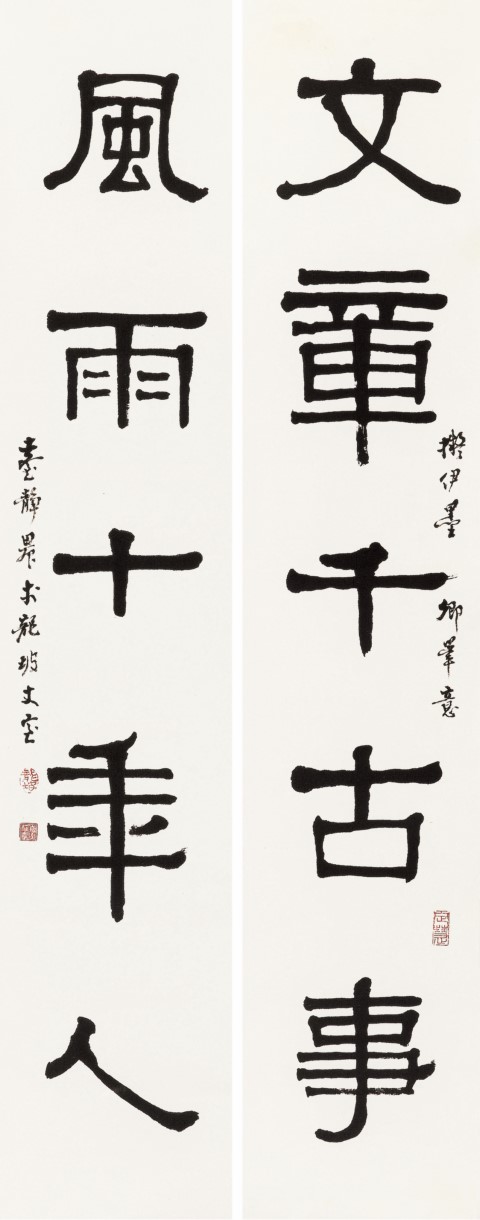 文章千古事
擬伊墨卿筆意
風雨十年人
臺靜農於龍坡丈室